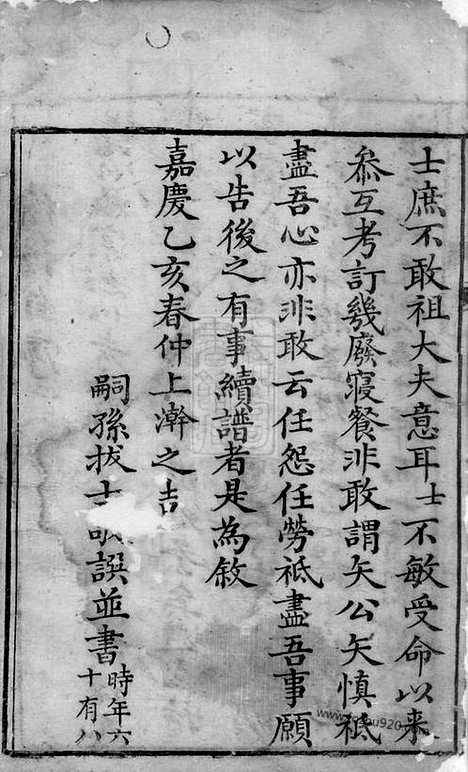 士庶不敢祖大夫意耳士不敏受命以来
叅互考訂幾廢寢餐非敢謂矢公矢慎祇
盡吾心亦非敢云任怨任勞祇盡吾事願
以告後之有事續譜者是為敘
嘉慶乙亥春仲上澣之吉
嗣孫拔士 譔並書時年六十有八